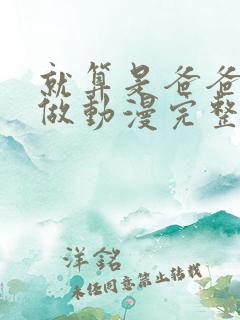 就算是爸爸
做動漫完整
洋銘
未經同意禁止轉載